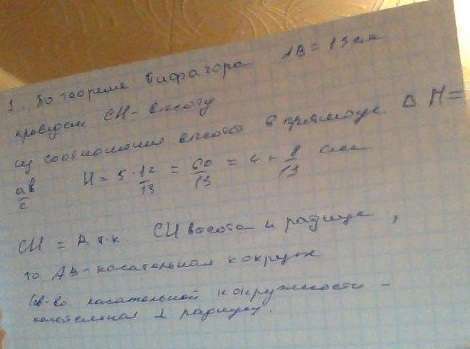 1. По теореме Пифагора AB = 13 см
проведем CH - высоту
из соотношения высоты в прямоуг. Δ H =
ab/c H = 5·12/13 = 60/13 = 4 8/13 см
CH = R т.к. CH высота и радиус,
то AB - касательная к окруж
Св-во касательной к окружности -
касательная ⊥ радиусу.